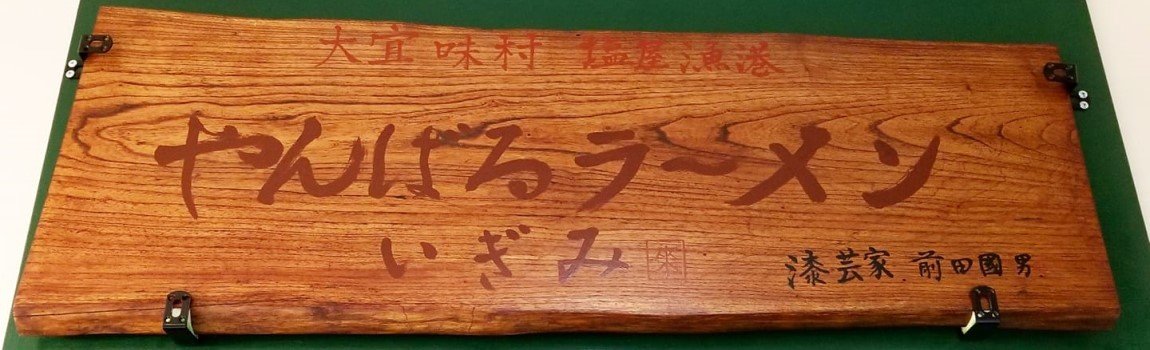 大宜味村 塩屋漁港
やんばるラーメン
いぎみ
漆芸家 前田國男